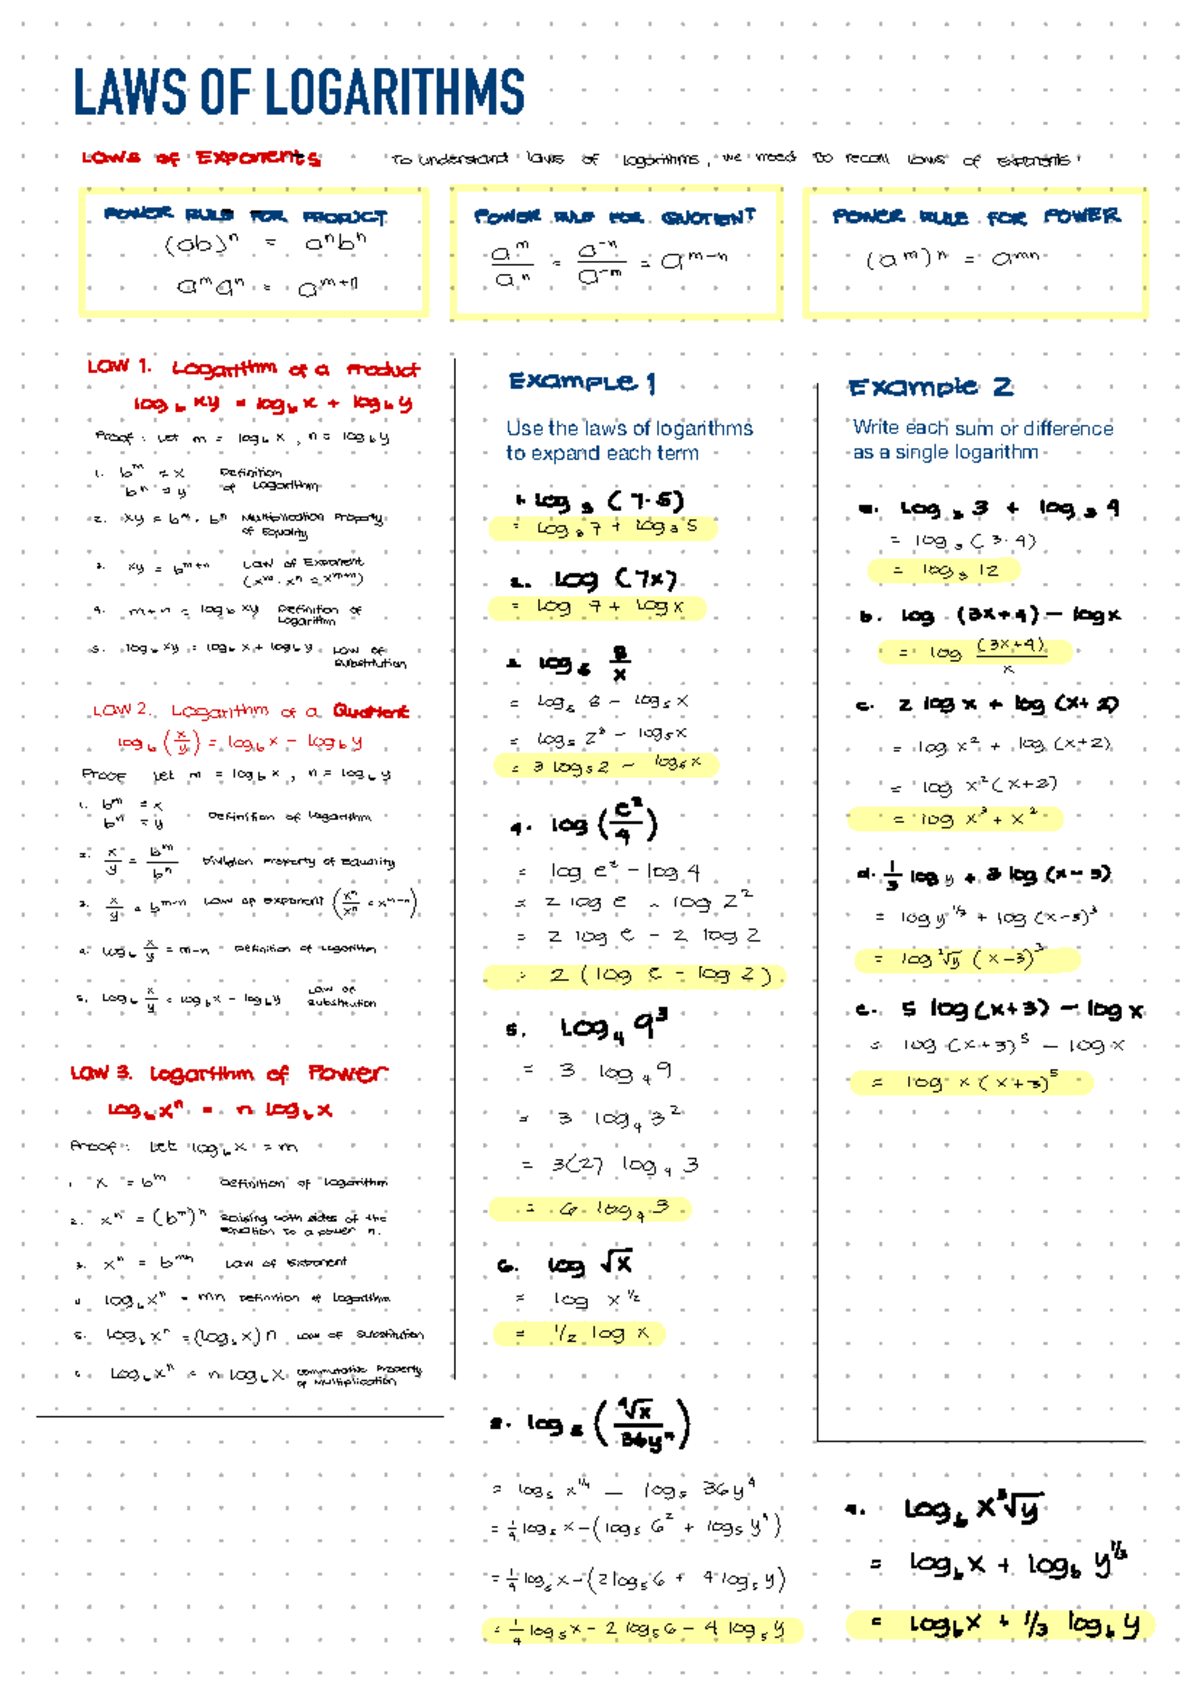 LAWS OF LOGARITHMS
Laws of Exponents
To understand laws of logarithms, we need to recall laws of exponents.
POWER RULE FOR PRODUCT
(ab)ⁿ = aⁿbⁿ
aᵐaⁿ = aᵐ⁺ⁿ
POWER RULE FOR QUOTIENT
aᵐ/aⁿ = a⁻ⁿ/a⁻ᵐ = aᵐ⁻ⁿ
POWER RULE FOR POWER
(aᵐ)ⁿ = aᵐⁿ
LAW 1. Logarithm of a Product
log_b xy = log_b x + log_b y
Proof: Let m = log_b x, n = log_b y
1. bᵐ = x Definition
bⁿ = y of Logarithm
2. xy = bᵐ · bⁿ Multiplication Property
of Equality
3. xy = bᵐ⁺ⁿ Law of Exponent
(xᵐ · xⁿ = xᵐ⁺ⁿ)
4. m+n = log_b xy Definition of
Logarithm
5. log_b xy = log_b x + log_b y Law of
Substitution
LAW 2. Logarithm of a Quotient
log_b (x/y) = log_b x − log_b y
Proof Let m = log_b x, n = log_b y
1. bᵐ = x
bⁿ = y Definition of Logarithm
2. x/y = bᵐ/bⁿ Division Property of Equality
3. x/y = bᵐ⁻ⁿ Law of exponent (xᵐ/xⁿ = xᵐ⁻ⁿ)
4. log_b x/y = m−n Definition of Logarithm
5. Log_b x/y = log_b x − log_b y Law of
Substitution
LAW 3. Logarithm of Power
log_b xⁿ = n log_b x
Proof: Let log_b x = m
1. x = bᵐ Definition of Logarithm
2. xⁿ = (bᵐ)ⁿ Raising both sides of the
equation to a power n.
3. xⁿ = bᵐⁿ Law of Exponent
4. log_b xⁿ = mn Definition of Logarithm
5. log_b xⁿ = (log_b x) n Law of Substitution
6. Log_b xⁿ = n log_b x Commutative Property
of Multiplication
Example 1
Use the laws of logarithms
to expand each term
1. log₃ (7·5)
= log₃ 7 + log₃ 5
2. log (7x)
= log 7 + log x
3. log₅ 8/x
= log₅ 8 − log₅ x
= log₅ 2³ − log₅ x
= 3 log₅ 2 − log₅ x
4. log (e²/4)
= log e² − log 4
= 2 log e − log 2²
= 2 log e − 2 log 2
= 2 (log e − log 2)
5. Log₄ 9³
= 3 log₄ 9
= 3 log₄ 3²
= 3(2) log₄ 3
= 6 log₄ 3
6. log √x
= log x^1/2
= 1/2 log x
8. log₅ (⁴√x / 36y⁴)
= log₅ x^1/4 − log₅ 36y⁴
= 1/4 log₅ x − (log₅ 6² + log₅ y⁴)
= 1/4 log₅ x − (2 log₅ 6 + 4 log₅ y)
= 1/4 log₅ x − 2 log₅ 6 − 4 log₅ y
Example 2
Write each sum or difference
as a single logarithm
a. Log₃ 3 + log₃ 4
= log₃ (3·4)
= log₃ 12
b. log (3x+4) − log x
= log (3x+4)/x
c. 2 log x + log (x+2)
= log x² + log (x+2)
= log x² (x+2)
= log x³ + x²
d. 1/3 log y + 3 log (x−3)
= log y^1/3 + log (x−3)³
= log ³√y (x−3)³
e. 5 log (x+3) − log x
= log (x+3)⁵ − log x
= log x (x+3)⁵
log_b x³√y
= log_b x + log_b y^1/3
= log_b x + 1/3 log_b y